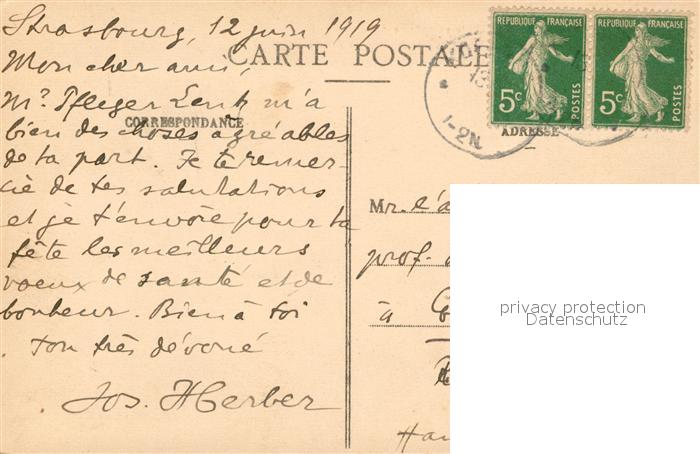 Strasbourg, 12 juin 1919
CARTE POSTALE
Mon cher ami,
Mr Pfleger m'a
bien des choses agréables
CORRESPONDANCE
de ta part. Je te remer-
cie de tes salutations
et je t'envoie pour ta
fête les meilleurs
voeux de santé et de
bonheur. Bien à toi
ton très dévoué
Jos. Herber
REPUBLIQUE FRANÇAISE
5c
POSTES
REPUBLIQUE FRANÇAISE
5c
POSTES
1-2N
ADRESSE
Mr. l'a
prof.
à
Hau
privacy protection
Datenschutz